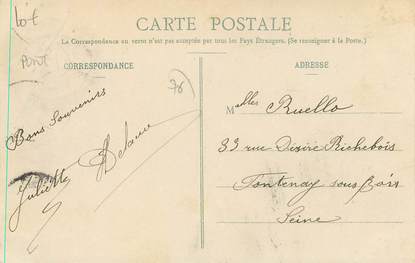 Lot
PONT
CARTE POSTALE
La Correspondance au verso n'est pas acceptée par tous les Pays Étrangers. (Se renseigner à la Poste.)
CORRESPONDANCE
ADRESSE
78
Bons Souvenirs
Juliette
Melles Ruello
33 rue Désiré Richebois
Fontenay sous Bois
Seine